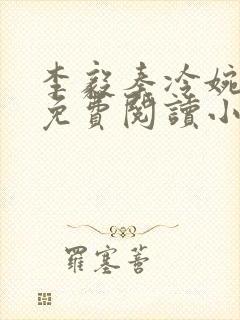 李毅秦冷婉
免費閱讀小
羅塞菩